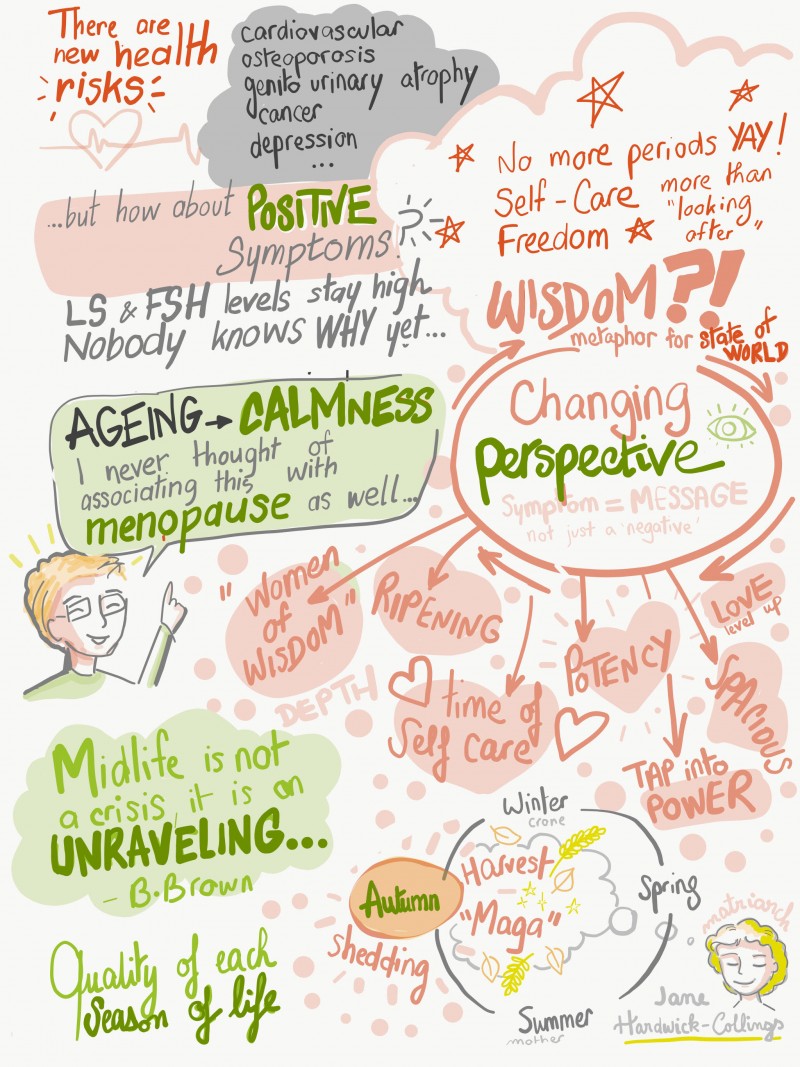 There are
new health
risks
cardiovascular
osteoporosis
genito urinary atrophy
cancer
depression
...
...but how about POSITIVE
Symptoms?
LS & FSH levels stay high
Nobody knows WHY yet...
No more periods YAY!
Self-Care more than
"looking
after"
Freedom
WISDOM?!
metaphor for state of
WORLD
AGEING → CALMNESS
I never thought of
associating this with
menopause as well...
Changing
perspective
Symptom = MESSAGE
not just a 'negative'
"Women
of
WISDOM"
RIPENING
DEPTH
time of
Self Care
POTENCY
LOVE
level up
SPACIOUS
TAP into
POWER
Midlife is not
a crisis, it is an
UNRAVELING...
- B.Brown
Quality of each
Season of life
Winter
crone
Harvest
"Maga"
Autumn
shedding
Spring
Summer
mother
matriarch
Jane
Hardwick-Collings